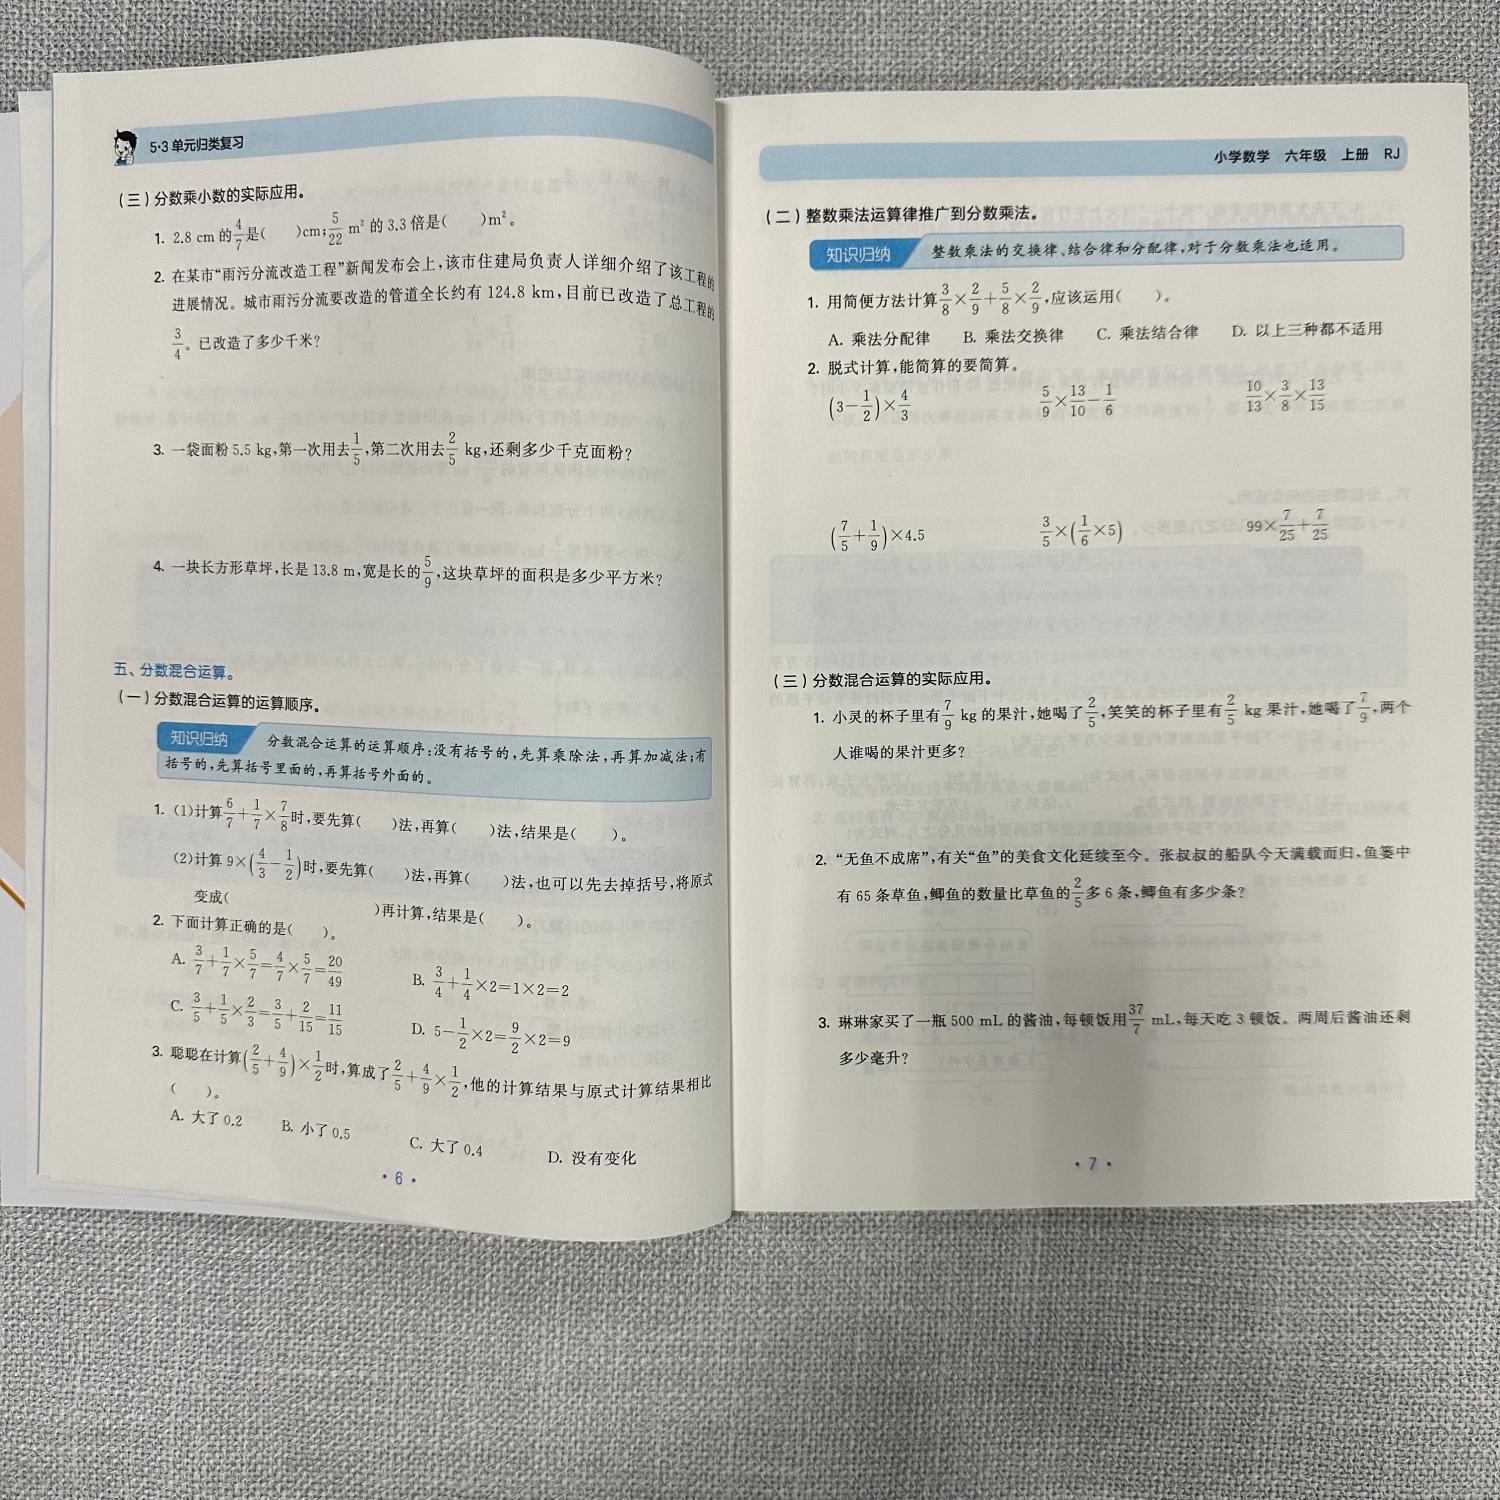 5·3 单元归类复习
(三)分数乘小数的实际应用。
1. 2.8 cm 的4/7是(  )cm;5/22 m²的 3.3 倍是(  )m²。
2. 在某市“雨污分流改造工程”新闻发布会上,该市住建局负责人详细介绍了该工程的
进展情况。城市雨污分流要改造的管道全长约有 124.8 km,目前已改造了总工程的
3/4。已改造了多少千米?
3. 一袋面粉 5.5 kg,第一次用去1/5,第二次用去2/5 kg,还剩多少千克面粉?
4. 一块长方形草坪,长是 13.8 m,宽是长的5/9,这块草坪的面积是多少平方米?
五、分数混合运算。
(一)分数混合运算的运算顺序。
知识归纳 分数混合运算的运算顺序:没有括号的,先算乘除法,再算加减法;有
括号的,先算括号里面的,再算括号外面的。
1. (1)计算6/7+1/7×7/8时,要先算(  )法,再算(  )法,结果是(  )。
(2)计算 9×(4/3−1/2)时,要先算(  )法,再算(  )法,也可以先去掉括号,将原式
变成(  )再计算,结果是(  )。
2. 下面计算正确的是(  )。
A. 3/7+1/7×5/7=4/7×5/7=20/49 B. 3/4+1/4×2=1×2=2
C. 3/5+1/5×2/3=3/5+2/15=11/15 D. 5−1/2×2=9/2×2=9
3. 聪聪在计算(2/5+4/9)×1/2时,算成了2/5+4/9×1/2,他的计算结果与原式计算结果相比
(  )。
A. 大了 0.2 B. 小了 0.5 C. 大了 0.4 D. 没有变化
· 6 ·
小学数学 六年级 上册 RJ
(二)整数乘法运算律推广到分数乘法。
知识归纳 整数乘法的交换律、结合律和分配律,对于分数乘法也适用。
1. 用简便方法计算3/8×2/9+5/8×2/9,应该运用(  )。
A. 乘法分配律 B. 乘法交换律 C. 乘法结合律 D. 以上三种都不适用
2. 脱式计算,能简算的要简算。
(3−1/2)×4/3 5/9×13/10−1/6 10/13×3/8×13/15
(7/5+1/9)×4.5 3/5×(1/6×5) 99×7/25+7/25
(三)分数混合运算的实际应用。
1. 小灵的杯子里有7/9 kg 的果汁,她喝了2/5,笑笑的杯子里有2/5 kg 果汁,她喝了7/9,两个
人谁喝的果汁更多?
2. “无鱼不成席”,有关“鱼”的美食文化延续至今。张叔叔的船队今天满载而归,鱼篓中
有 65 条草鱼,鲫鱼的数量比草鱼的2/5多 6 条,鲫鱼有多少条?
3. 琳琳家买了一瓶 500 mL 的酱油,每顿饭用37/7 mL,每天吃 3 顿饭。两周后酱油还剩
多少毫升?
· 7 ·